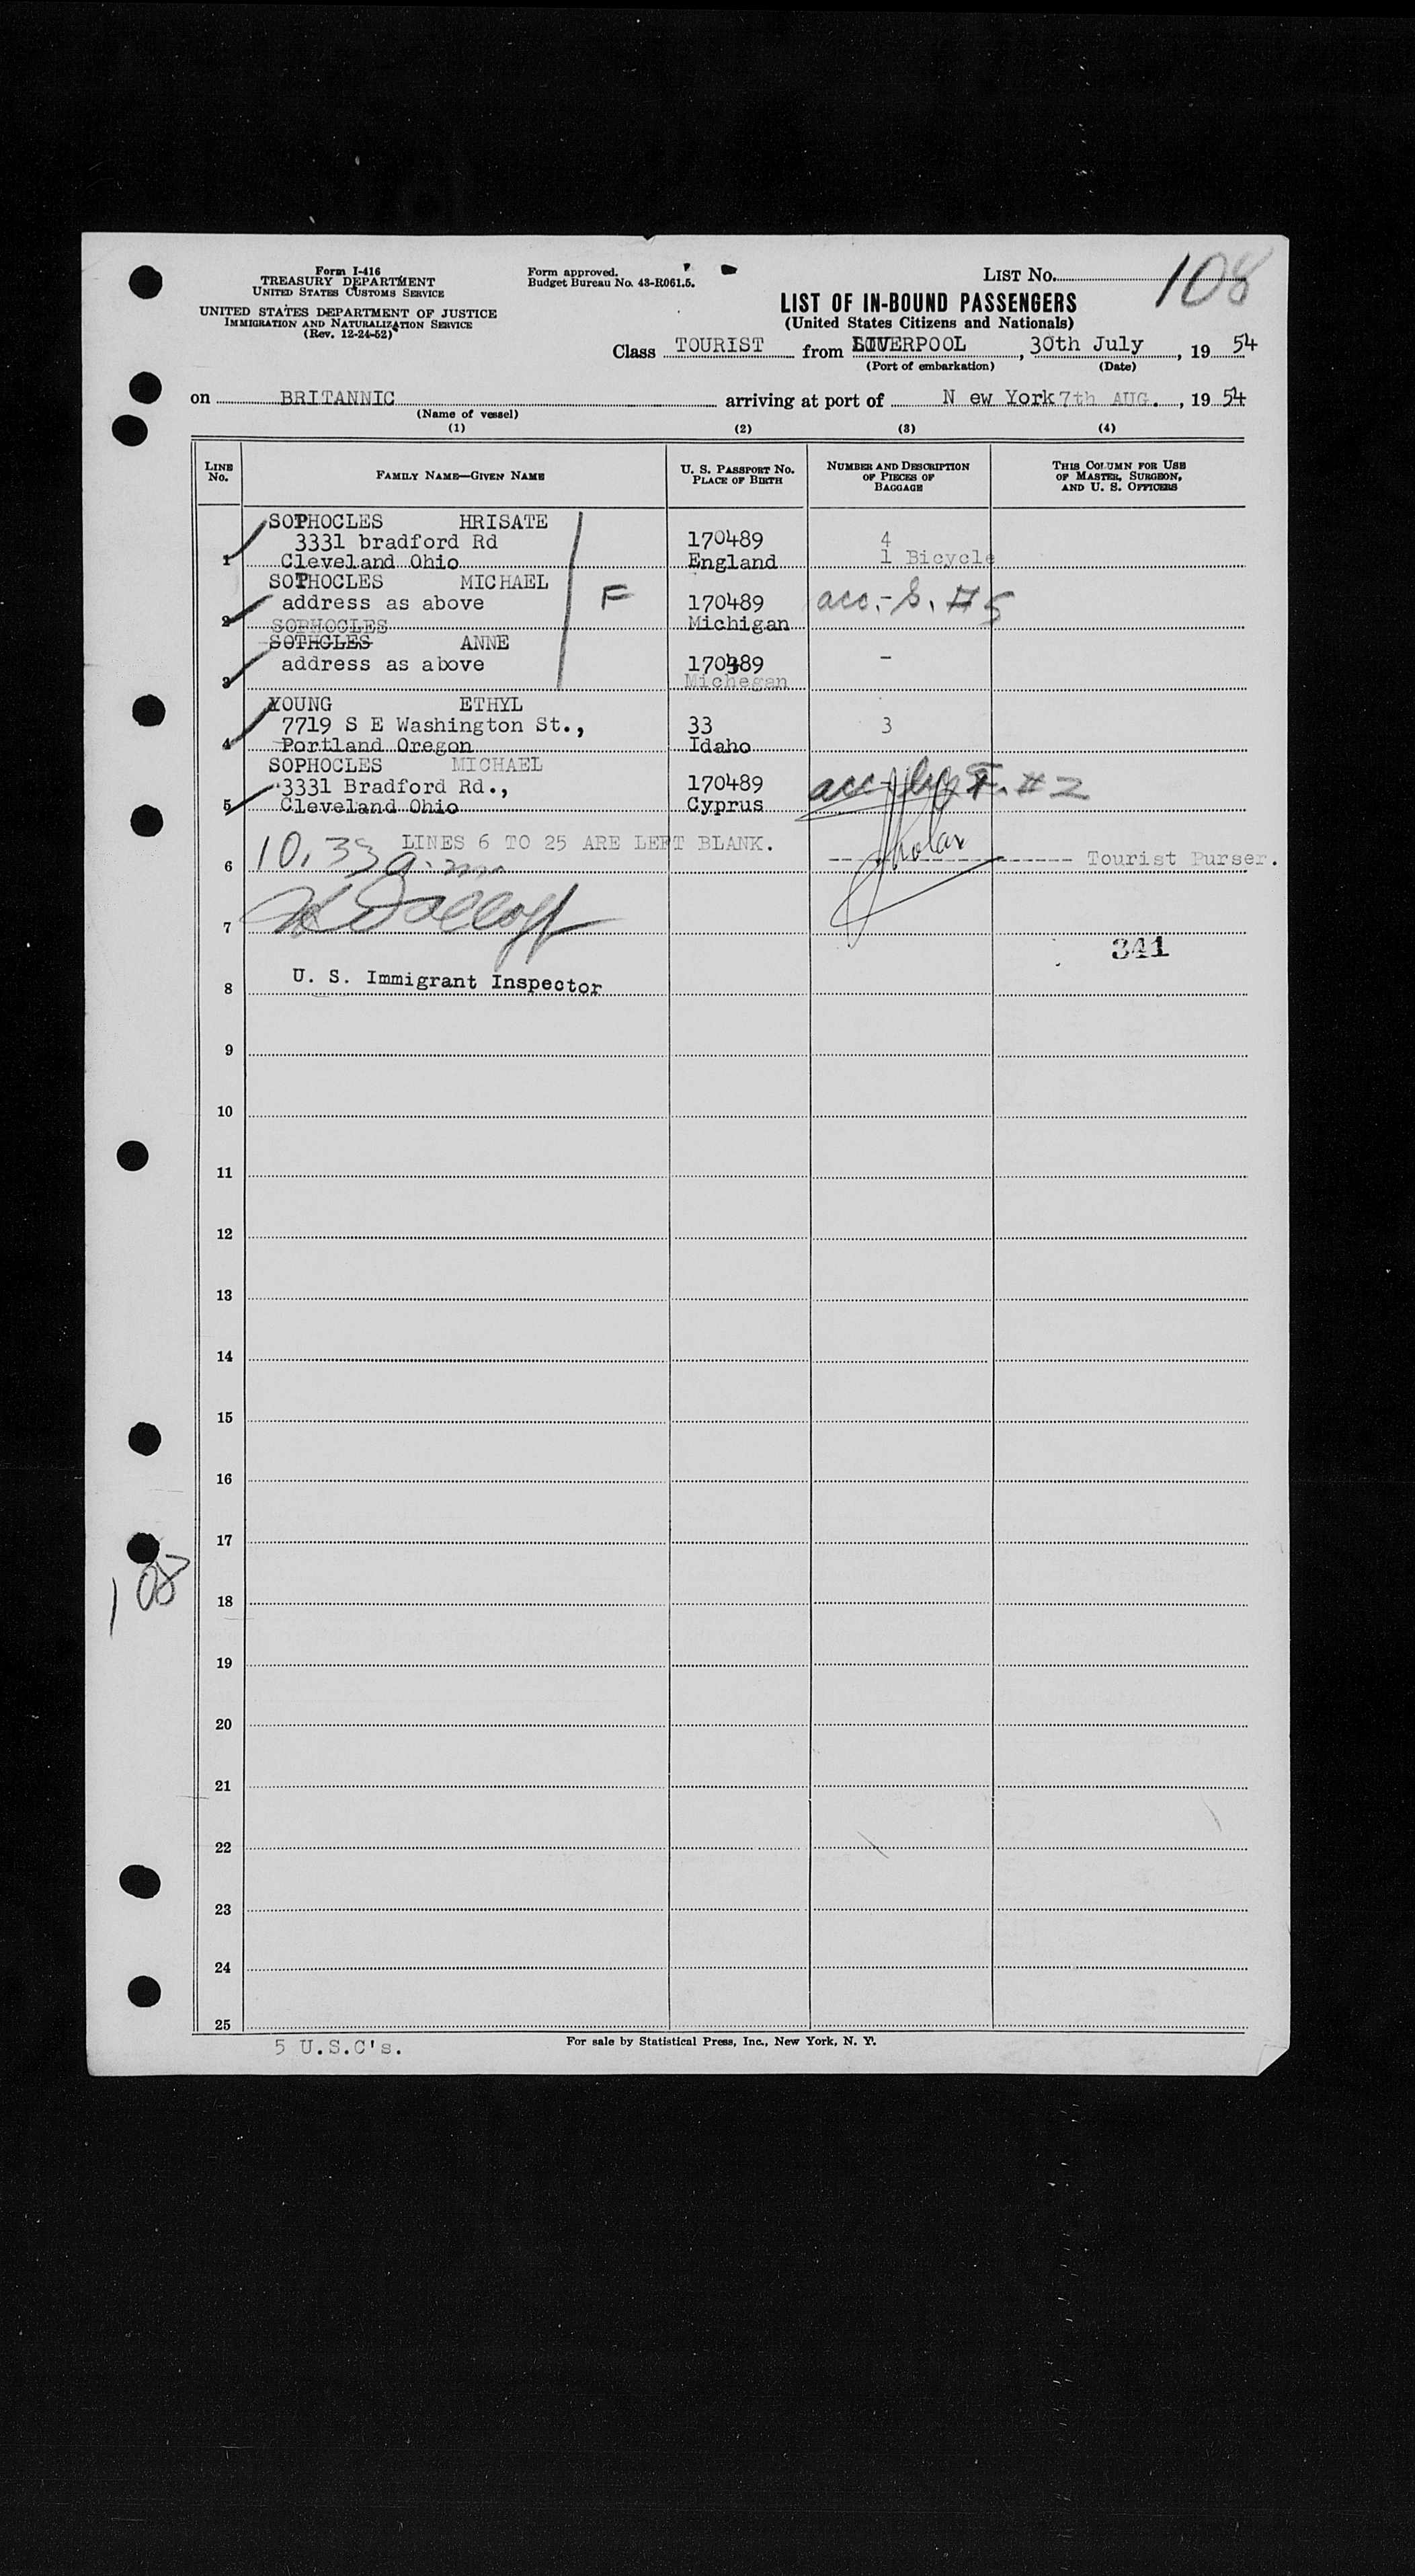 Form I-416
TREASURY DEPARTMENT
UNITED STATES CUSTOMS SERVICE
UNITED STATES DEPARTMENT OF JUSTICE
IMMIGRATION AND NATURALIZATION SERVICE
(Rev. 12-24-52)
Form approved.
Budget Bureau No. 43-R061.5.
LIST No. 108
LIST OF IN-BOUND PASSENGERS
(United States Citizens and Nationals)
Class TOURIST from LIVERPOOL, 30th July, 19 54
(Port of embarkation) (Date)
on BRITANNIC arriving at port of N ew York 7th AUG., 19 54
(Name of vessel)
(1) (2) (3) (4)
LINE No. FAMILY NAME—GIVEN NAME U. S. PASSPORT No. PLACE OF BIRTH NUMBER AND DESCRIPTION OF PIECES OF BAGGAGE THIS COLUMN FOR USE OF MASTER, SURGEON, AND U. S. OFFICERS
SOPHOCLES HRISATE
3331 bradford Rd 170489 4
1 Cleveland Ohio England 1 Bicycle
SOPHOCLES MICHAEL
address as above F 170489 acc.- S. # 5
2 SOPHOCLES Michigan
SOTHCLES ANNE
address as above 170489 -
3 Michegan
YOUNG ETHYL
7719 S E Washington St., 33 3
4 Portland Oregon Idaho
SOPHOCLES MICHAEL
3331 Bradford Rd., 170489 acc- by F. # 2
5 Cleveland Ohio Cyprus
LINES 6 TO 25 ARE LEFT BLANK.
6 10.33 a.m. Tourist Purser.
7
341
U. S. Immigrant Inspector
8
9
10
11
12
13
14
15
16
17
108
18
19
20
21
22
23
24
25
5 U.S.C's. For sale by Statistical Press, Inc., New York, N. Y.